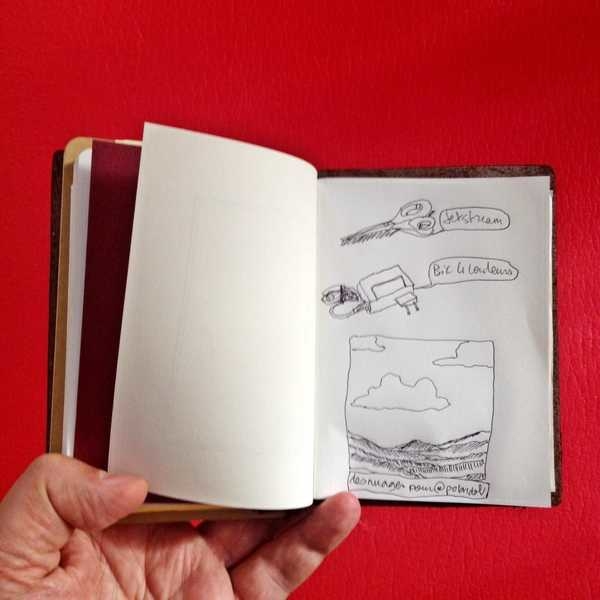 Jetstream
Bic 4 Couleurs
des nuages pour @